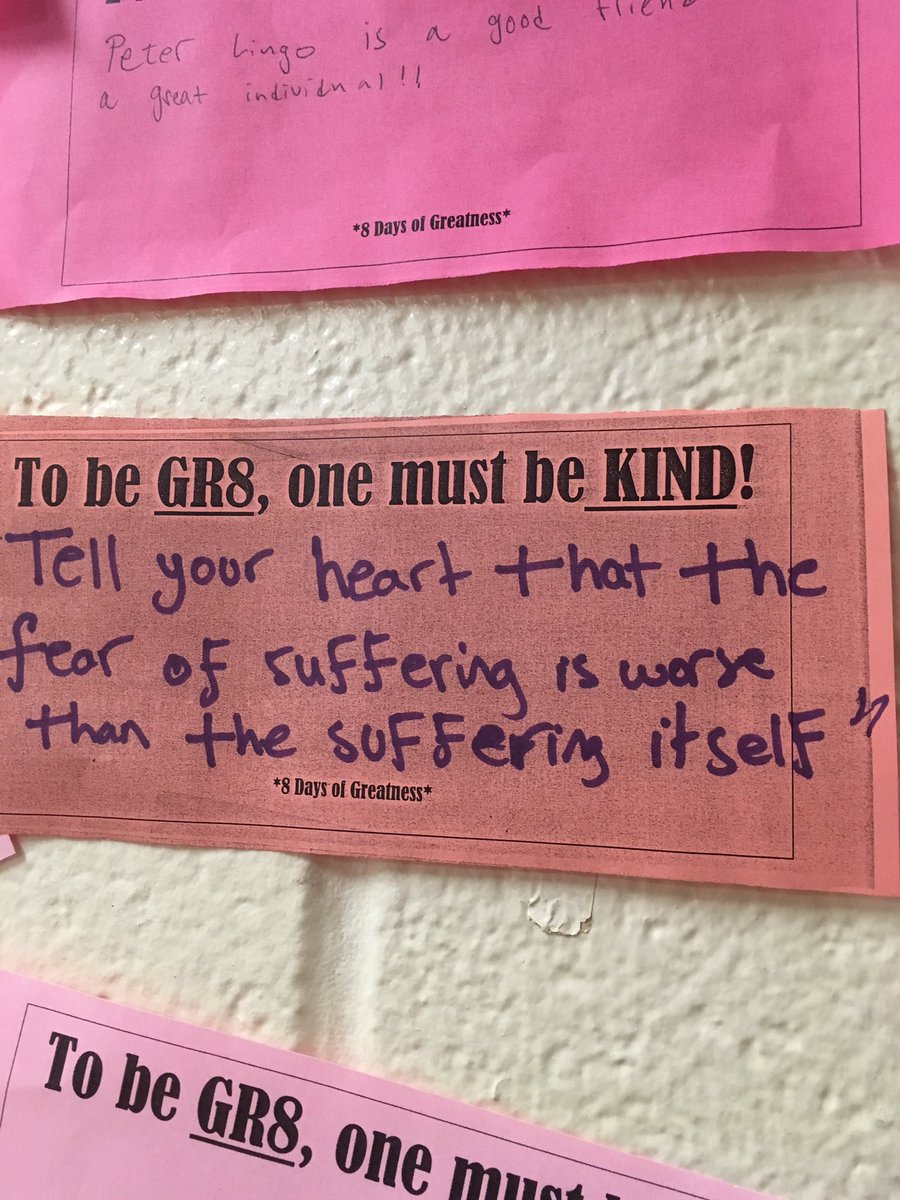 Peter Lingo is a good friend
a great individual!!
*8 Days of Greatness*
To be GR8, one must be KIND!
"Tell your heart that the
fear of suffering is worse
than the suffering itself"
*8 Days of Greatness*
To be GR8, one must